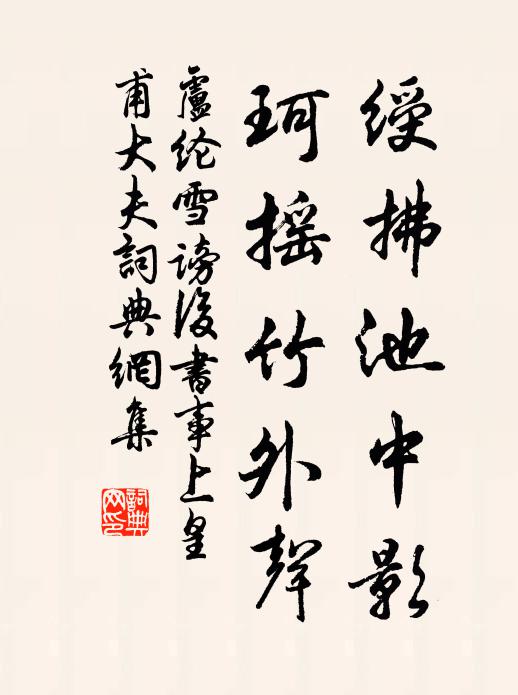 綬拂池中影
珂摇竹外聲
盧纶雪謗後書事上皇
甫大夫詞典網集
詞典
网印